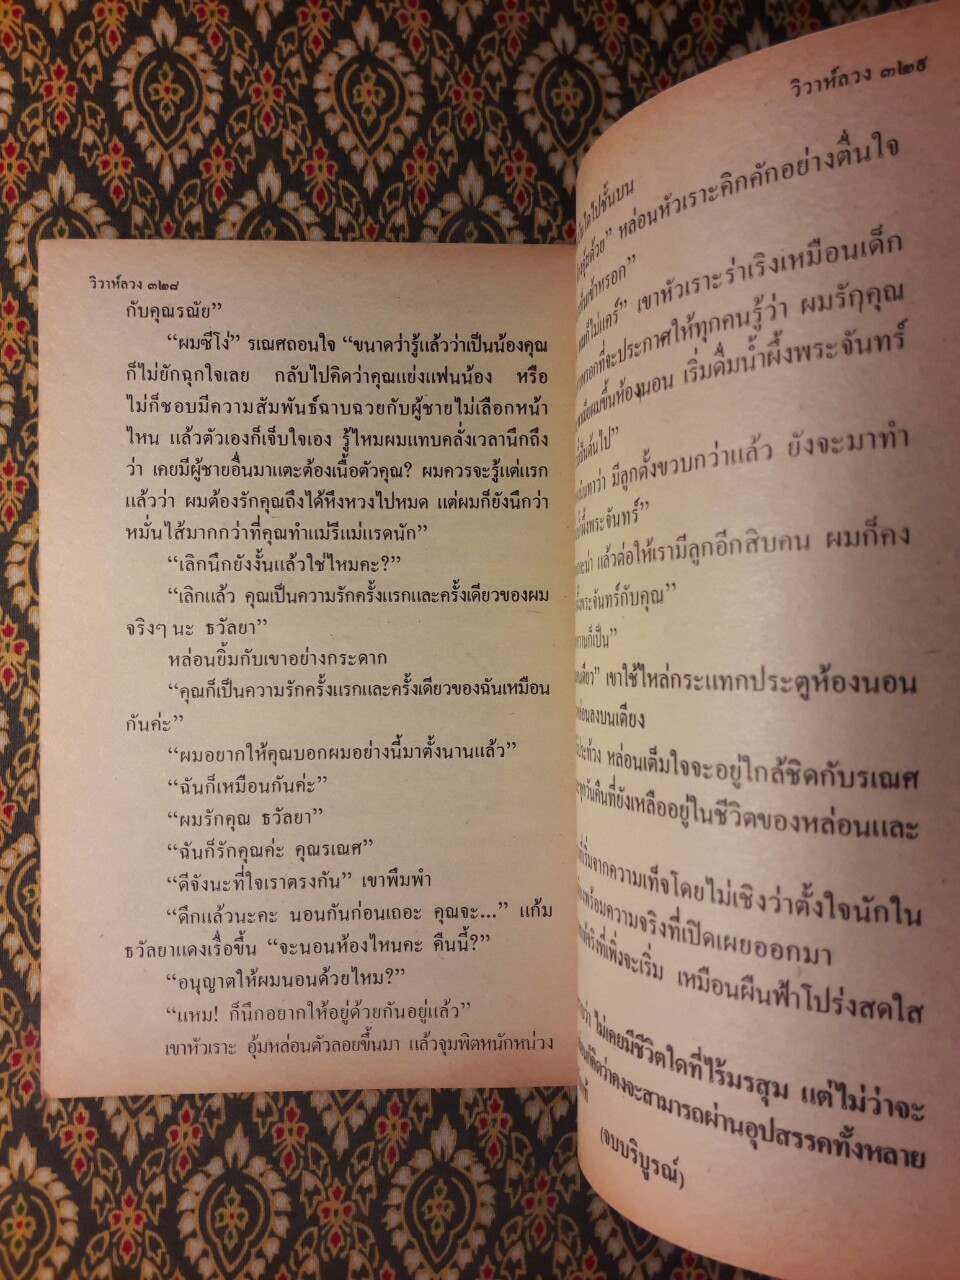 วิวาห์ลวง ๓๒๘
กับคุณรณัย”
“ผมซีโง่” รเณศถอนใจ “ขนาดว่ารู้แล้วว่าเป็นน้องคุณ
ก็ไม่ยักฉุกใจเลย กลับไปคิดว่าคุณแย่งแฟนน้อง หรือ
ไม่ก็ชอบมีความสัมพันธ์ฉาบฉวยกับผู้ชายไม่เลือกหน้า
ไหน แล้วตัวเองก็เจ็บใจเอง รู้ไหมผมแทบคลั่งเวลานึกถึง
ว่า เคยมีผู้ชายอื่นมาแตะต้องเนื้อตัวคุณ? ผมควรจะรู้แต่แรก
แล้วว่า ผมต้องรักคุณถึงได้หึงหวงไปหมด แต่ผมก็ยังนึกว่า
หมั่นไส้มากกว่าที่คุณทำแม่รีแม่แรดนัก”
“เลิกนึกยังงั้นแล้วใช่ไหมคะ?”
“เลิกแล้ว คุณเป็นความรักครั้งแรกและครั้งเดียวของผม
จริงๆ นะ ธวัลยา”
หล่อนยิ้มกับเขาอย่างกระดาก
“คุณก็เป็นความรักครั้งแรกและครั้งเดียวของฉันเหมือน
กันค่ะ”
“ผมอยากให้คุณบอกผมอย่างนี้มาตั้งนานแล้ว”
“ฉันก็เหมือนกันค่ะ”
“ผมรักคุณ ธวัลยา”
“ฉันก็รักคุณค่ะ คุณรเณศ”
“ดีจังนะที่ใจเราตรงกัน” เขาพึมพำ
“ดึกแล้วนะคะ นอนกันก่อนเถอะ คุณจะ...” แก้ม
ธวัลยาแดงเรื่อขึ้น “จะนอนห้องไหนคะ คืนนี้?”
“อนุญาตให้ผมนอนด้วยไหม?”
“แหม! ก็นึกอยากให้อยู่ด้วยกันอยู่แล้ว”
เขาหัวเราะ อุ้มหล่อนตัวลอยขึ้นมา แล้วจุมพิตหนักหน่วง
วิวาห์ลวง ๓๒๙
ไปชั้นบน
หล่อนหัวเราะคิกคักอย่างตื่นใจ
เขาหัวเราะร่าเริงเหมือนเด็ก
ที่จะประกาศให้ทุกคนรู้ว่า ผมรักคุณ
ผมขึ้นห้องนอน เริ่มดื่มน้ำผึ้งพระจันทร์
ต้นไป”
ว่า มีลูกตั้งขวบกว่าแล้ว ยังจะมาทำ
พระจันทร์”
แล้วต่อให้เรามีลูกอีกสิบคน ผมก็คง
พระจันทร์กับคุณ”
ก็เป็น”
เขาใช้ไหล่กระแทกประตูห้องนอน
ลงบนเตียง
หล่อนเต็มใจจะอยู่ใกล้ชิดกับรเณศ
ทุกวันคืนที่ยังเหลืออยู่ในชีวิตของหล่อนและ
เริ่มจากความเท็จโดยไม่เชิงว่าตั้งใจนักใน
พร้อมความจริงที่เปิดเผยออกมา
ที่เพิ่งจะเริ่ม เหมือนผืนฟ้าโปร่งสดใส
ว่า ไม่เคยมีชีวิตใดที่ไร้มรสุม แต่ไม่ว่าจะ
คิดว่าคงจะสามารถผ่านอุปสรรคทั้งหลาย
(จบบริบูรณ์)